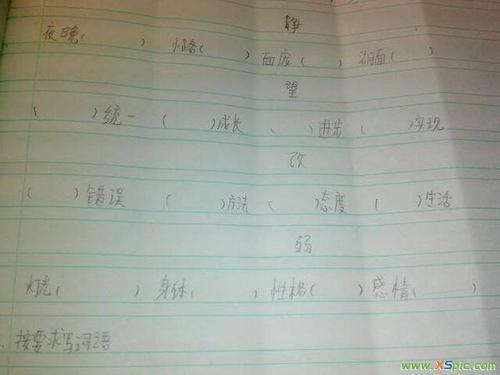 静
夜晚( ) 小路( ) 面庞( ) 湖面( )
望
( )统一 ( )成长 ( )进步 ( )实现
改
( )错误 ( )方法 ( )态度 ( )生活
弱
灯光( ) 身体( ) 性格( ) 感情( )
按要求写词语
www.XSpic.com